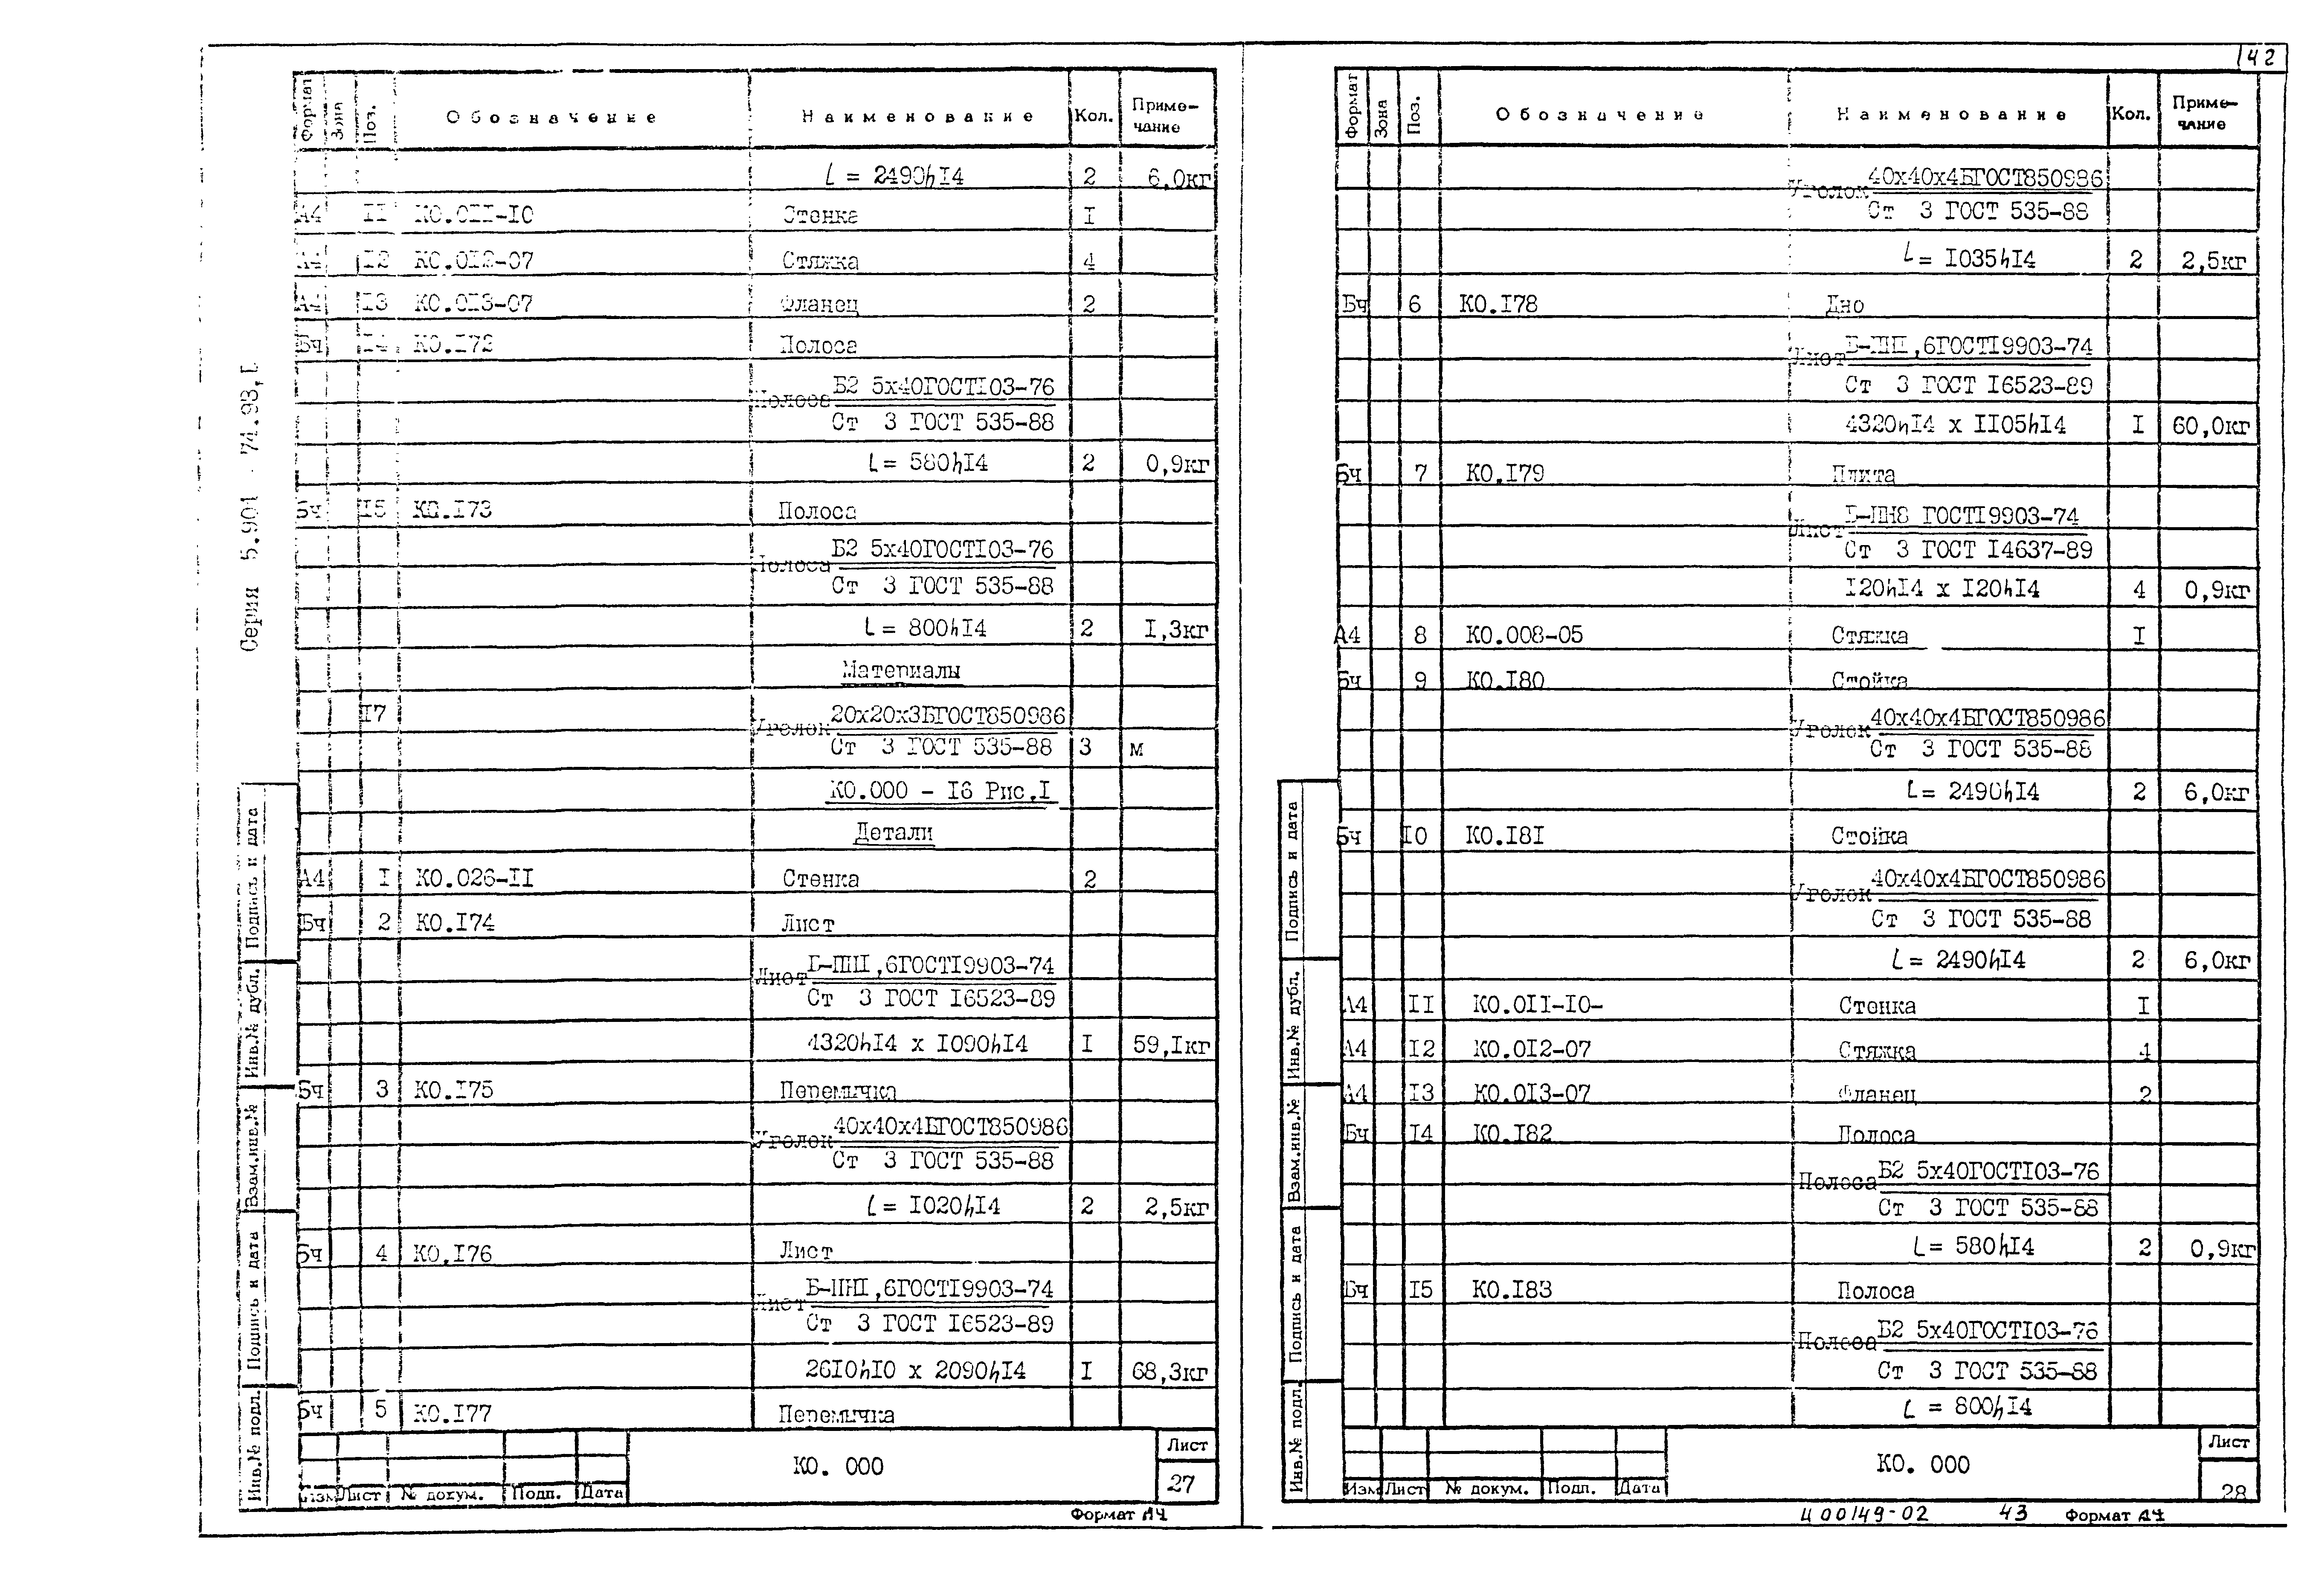 42
Серия 5.901-74.93,1
Формат Зона Поз. Обозначение Наименование Кол. Приме-
чание
L = 2490h14 2 6,0кг
А4 11 КО.011-10 Стенка 1
А4 12 КО.012-07 Стяжка 4
А4 13 КО.013-07 Фланец 2
Бч 14 КО.172 Полоса
Полоса Б2 5х40ГОСТ103-76
Ст 3 ГОСТ 535-88
L = 580h14 2 0,9кг
Бч 15 КО.173 Полоса
Полоса Б2 5х40ГОСТ103-76
Ст 3 ГОСТ 535-88
L = 800h14 2 1,3кг
Материалы
17 Уголок 20х20х3БГОСТ850986
Ст 3 ГОСТ 535-88 3 м
КО.000 - 16 Рис.1
Детали
А4 1 КО.026-11 Стенка 2
Бч 2 КО.174 Лист
Лист Б-ПН1,6ГОСТ19903-74
Ст 3 ГОСТ 16523-89
4320h14 х 1090h14 1 59,1кг
Бч 3 КО.175 Перемычка
Уголок 40х40х4БГОСТ850986
Ст 3 ГОСТ 535-88
L = 1020h14 2 2,5кг
Бч 4 КО.176 Лист
Лист Б-ПН1,6ГОСТ19903-74
Ст 3 ГОСТ 16523-89
2610h10 х 2090h14 1 68,3кг
Бч 5 КО.177 Перемычка
Инв.№ подл. Подпись и дата Взам.инв.№ Инв.№ дубл. Подпись и дата
Изм Лист № докум. Подп. Дата
КО. 000
Лист
27
Формат А4
Формат Зона Поз. Обозначение Наименование Кол. Приме-
чание
Уголок 40х40х4БГОСТ850986
Ст 3 ГОСТ 535-88
L = 1035h14 2 2,5кг
Бч 6 КО.178 Дно
Лист Б-ПН1,6ГОСТ19903-74
Ст 3 ГОСТ 16523-89
4320h14 х 1105h14 1 60,0кг
Бч 7 КО.179 Плита
Лист Б-ПН8 ГОСТ19903-74
Ст 3 ГОСТ 14637-89
120h14 х 120h14 4 0,9кг
А4 8 КО.008-05 Стяжка 1
Бч 9 КО.180 Стойка
Уголок 40х40х4БГОСТ850986
Ст 3 ГОСТ 535-88
L = 2490h14 2 6,0кг
Бч 10 КО.181 Стойка
Уголок 40х40х4БГОСТ850986
Ст 3 ГОСТ 535-88
L = 2490h14 2 6,0кг
А4 11 КО.011-10- Стенка 1
А4 12 КО.012-07 Стяжка 4
А4 13 КО.013-07 Фланец 2
Бч 14 КО.182 Полоса
Полоса Б2 5х40ГОСТ103-76
Ст 3 ГОСТ 535-88
L = 580h14 2 0,9кг
Бч 15 КО.183 Полоса
Полоса Б2 5х40ГОСТ103-76
Ст 3 ГОСТ 535-88
L = 800h14
Инв.№ подл. Подпись и дата Взам.инв.№ Инв.№ дубл. Подпись и дата
Изм Лист № докум. Подп. Дата
КО. 000
Лист
28
Ц00149-02 43 Формат А4